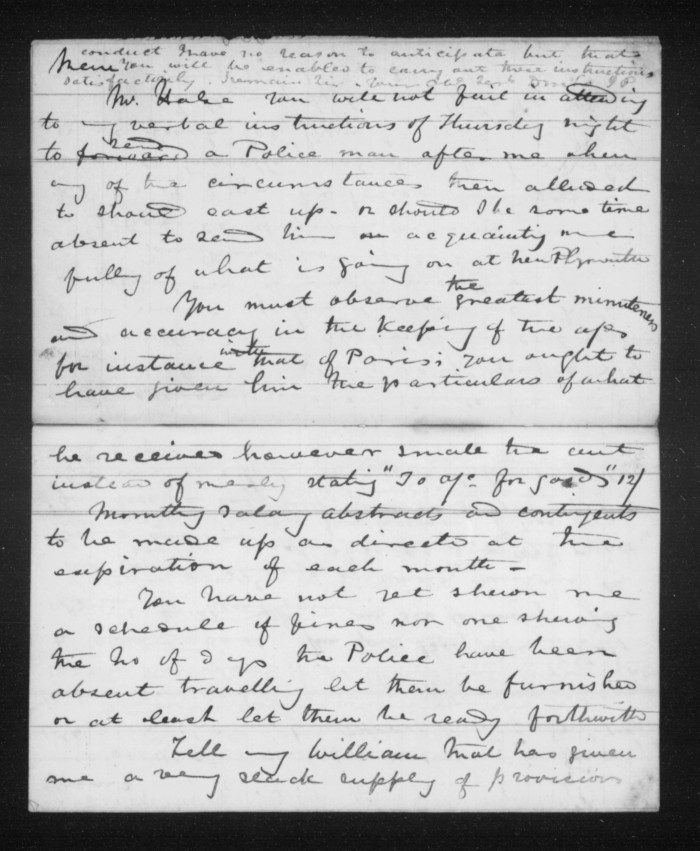 conduct I have no reason to anticipate but that
Mem you will be enabled to carry out these instructions
satisfactorily. I remain Sir Your
Mr. Hake You will not fail in attending
to my verbal instructions of Thursday night
send
to forward a Police man after me when
any of the circumstances then alluded
to should cast up - or should I be some time
absent to send him on acquainting me
fully of what is going on at New Plymouth
You must observe the greatest minuteness
and accuracy in the keeping of the a/cs
for instance in the that of Paris; you ought to
have given him the particulars of what
he received however small the amt
instead of merely stating "To a/c for goods" 12/
Monthly Salary abstracts and contingents
to be made up as directed at the
expiration of each month -
You have not yet shewn me
a schedule of fines nor one shewing
the No of Days the Police have been
absent travelling let them be furnished
or at least let them be ready forthwith
Tell my William that has given
me a very slack supply of provisions